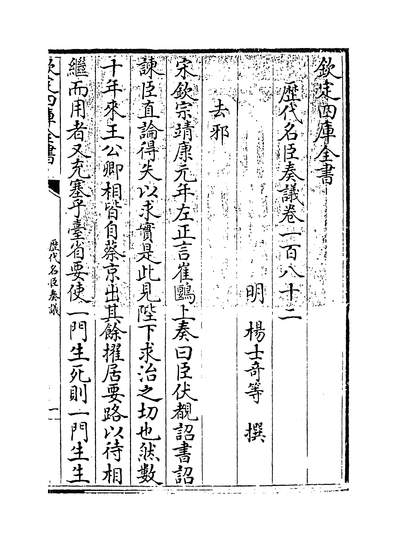 欽定四庫全書
歷代名臣奏議卷一百八十二
明 楊士奇等 撰
去邪
宋欽宗靖康元年左正言崔鶠上奏曰臣伏覩詔書詔
諫臣直論得失以求實是此見陛下求治之切也然數
十年來王公卿相皆自蔡京出其餘擢居要路以待相
繼而用者又充塞乎臺省要使一門生死則一門生生
欽定四庫全書
歷代名臣奏議
一